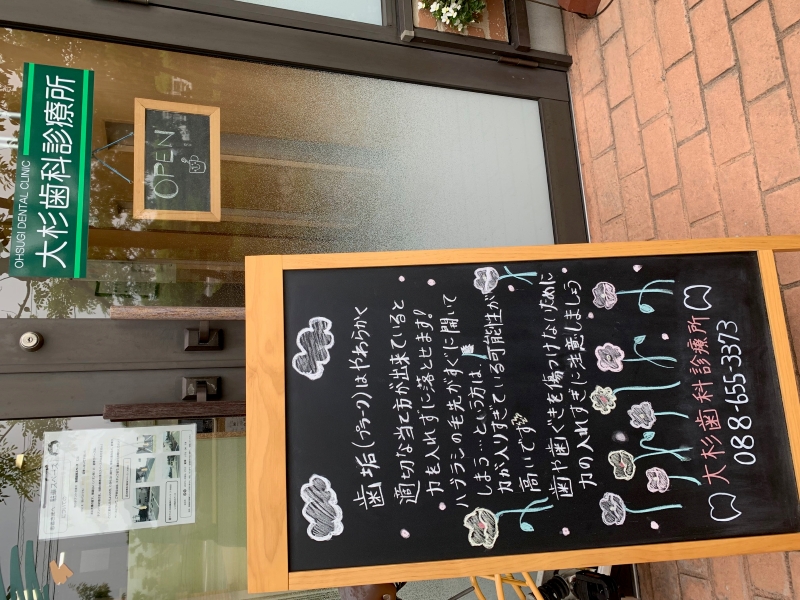 OHSUGI DENTAL CLINIC
大杉歯科診療所
OPEN
歯垢(プラーク)はやわらかく
適切な当て方が出来ていると
力を入れずに落とせます!
ハブラシの毛先がすぐに開いて
しまう…という方は、
力が入りすぎている可能性が
高いです
歯や歯ぐきを傷つけないために
力の入れすぎに注意しましょう
大杉歯科診療所
088-655-3373